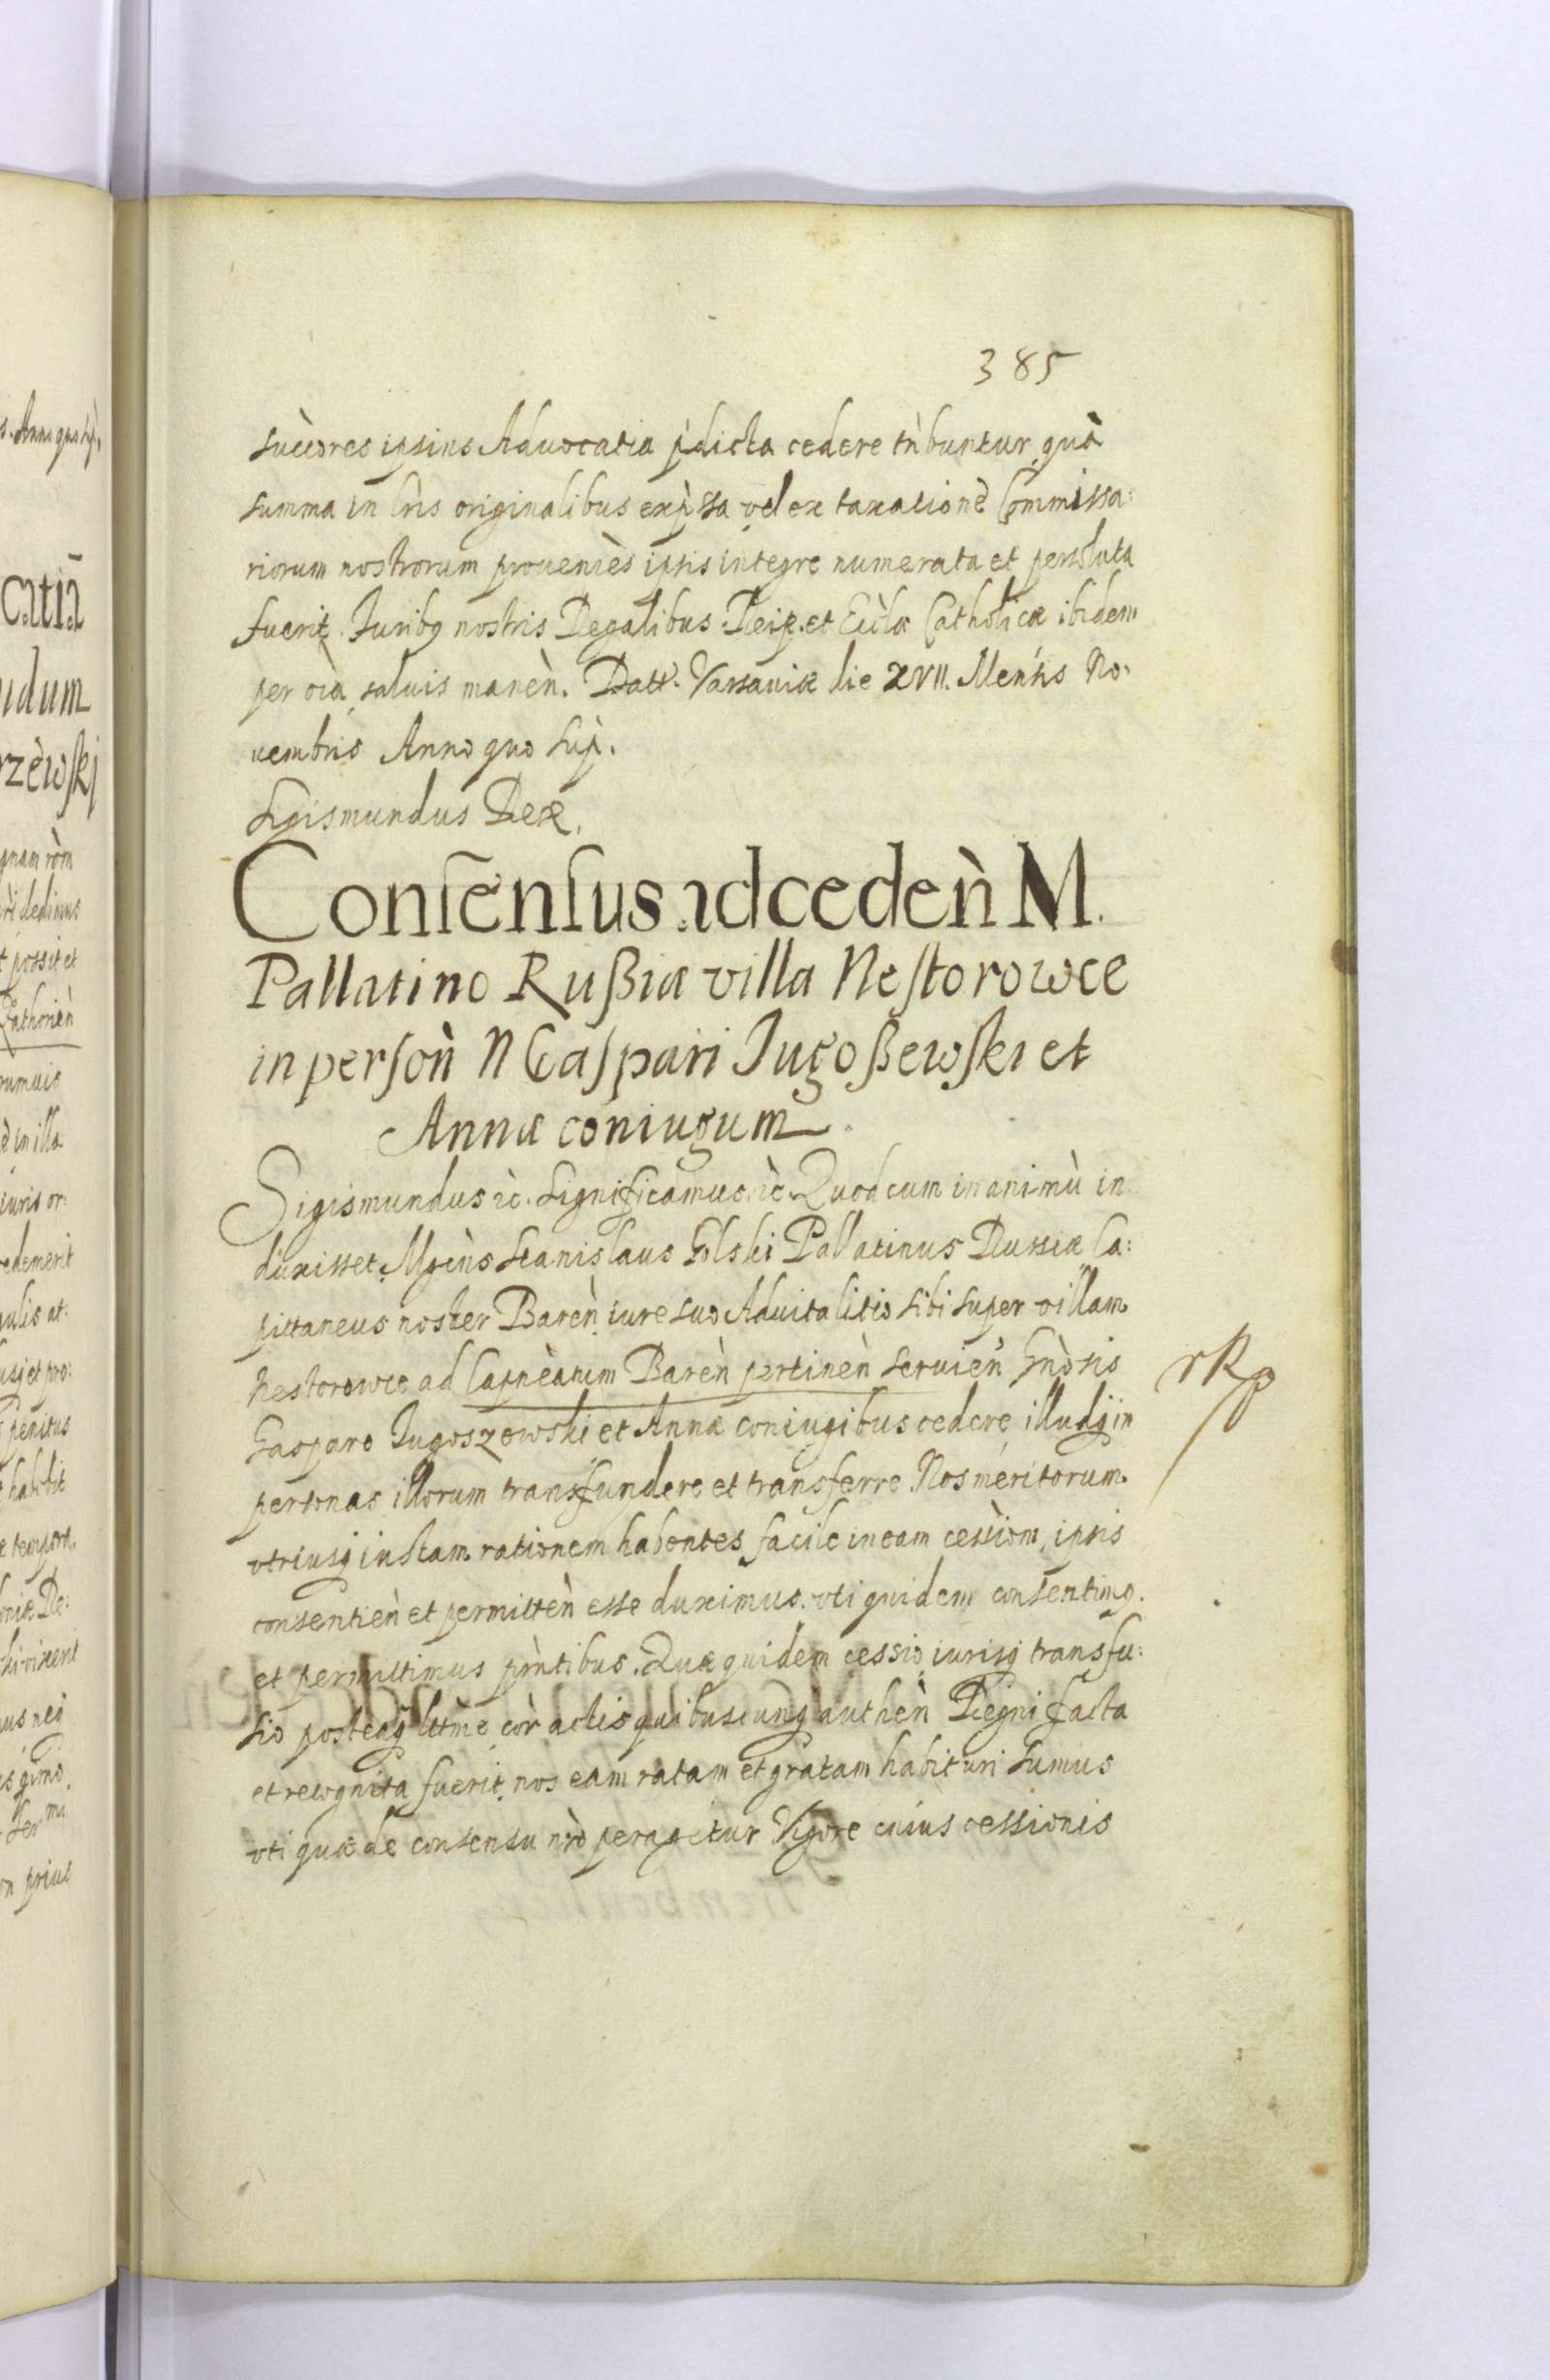 385
succores ipsius Aduocatia p̀dicta cedere tǹbuntur, quà
summa in lrìs originalibus exp̀ssa vel ex taxatione Commissa:
riorum nostrorum proueniès ipsis integre numerata et persoluta
fuerit. Juribq nostris Regalibus Reip. et Ecclæ Catholicæ ibidem
per oìa saluis manèn. Datt. Varsauiæ die XVII. Mensis No:
uembris Anno quo Sup̀.
Sigismundus Rex.
Consensus ad cedeǹ M.
Pallatino Rußiæ villa Nestorowce
in persoǹ N Caspari Jugoßewski et
Annæ coniugum
Sigismundus ic̀. Significamus ic̀. Quod cum in animù in
duxisset Mgcùs Stanislaus Golski Pallatinus Russiæ Ca:
pittaneus noster Bareǹ iure suo Aduitalitio sibi super villam
Nestorowce ad Capneàtum Bareǹ pertineǹ seruieǹ Gnòsis
Gasparo Jugoszewski et Annæ coniugibus cedere, illudq in
personas illorum transfundere et transferre. Nos meritorum
vtriusq iustam rationem habentes facile in eam cessiòm, ipsis
consentieǹ et permitteǹ esse duximus. vti quidem consentimq.
et permittimus pǹtibus. Quæ quidem cessio iurisq transfu:
sio posteaq̃ lttme còr actis quibuscunq autheǹ Regni facta
et recognita fuerit, nos eam ratam et gratam habituri sumus
vti quæ de consensu nrò peragetur. Vigore cuius cessionis